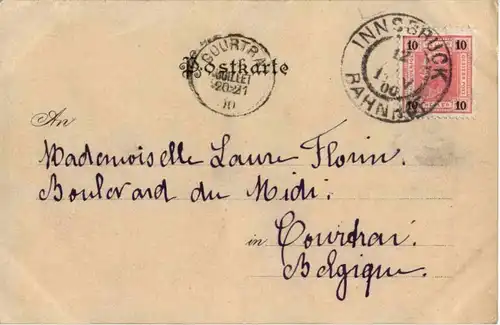 INNSBRUCK
BAHNHOF
10 10
10 10
COURTRAI
JUILLET
20-21
Postkarte
An
Mademoiselle Laure Florin.
Boulevard du Midi.
in Courtrai.
Belgique.